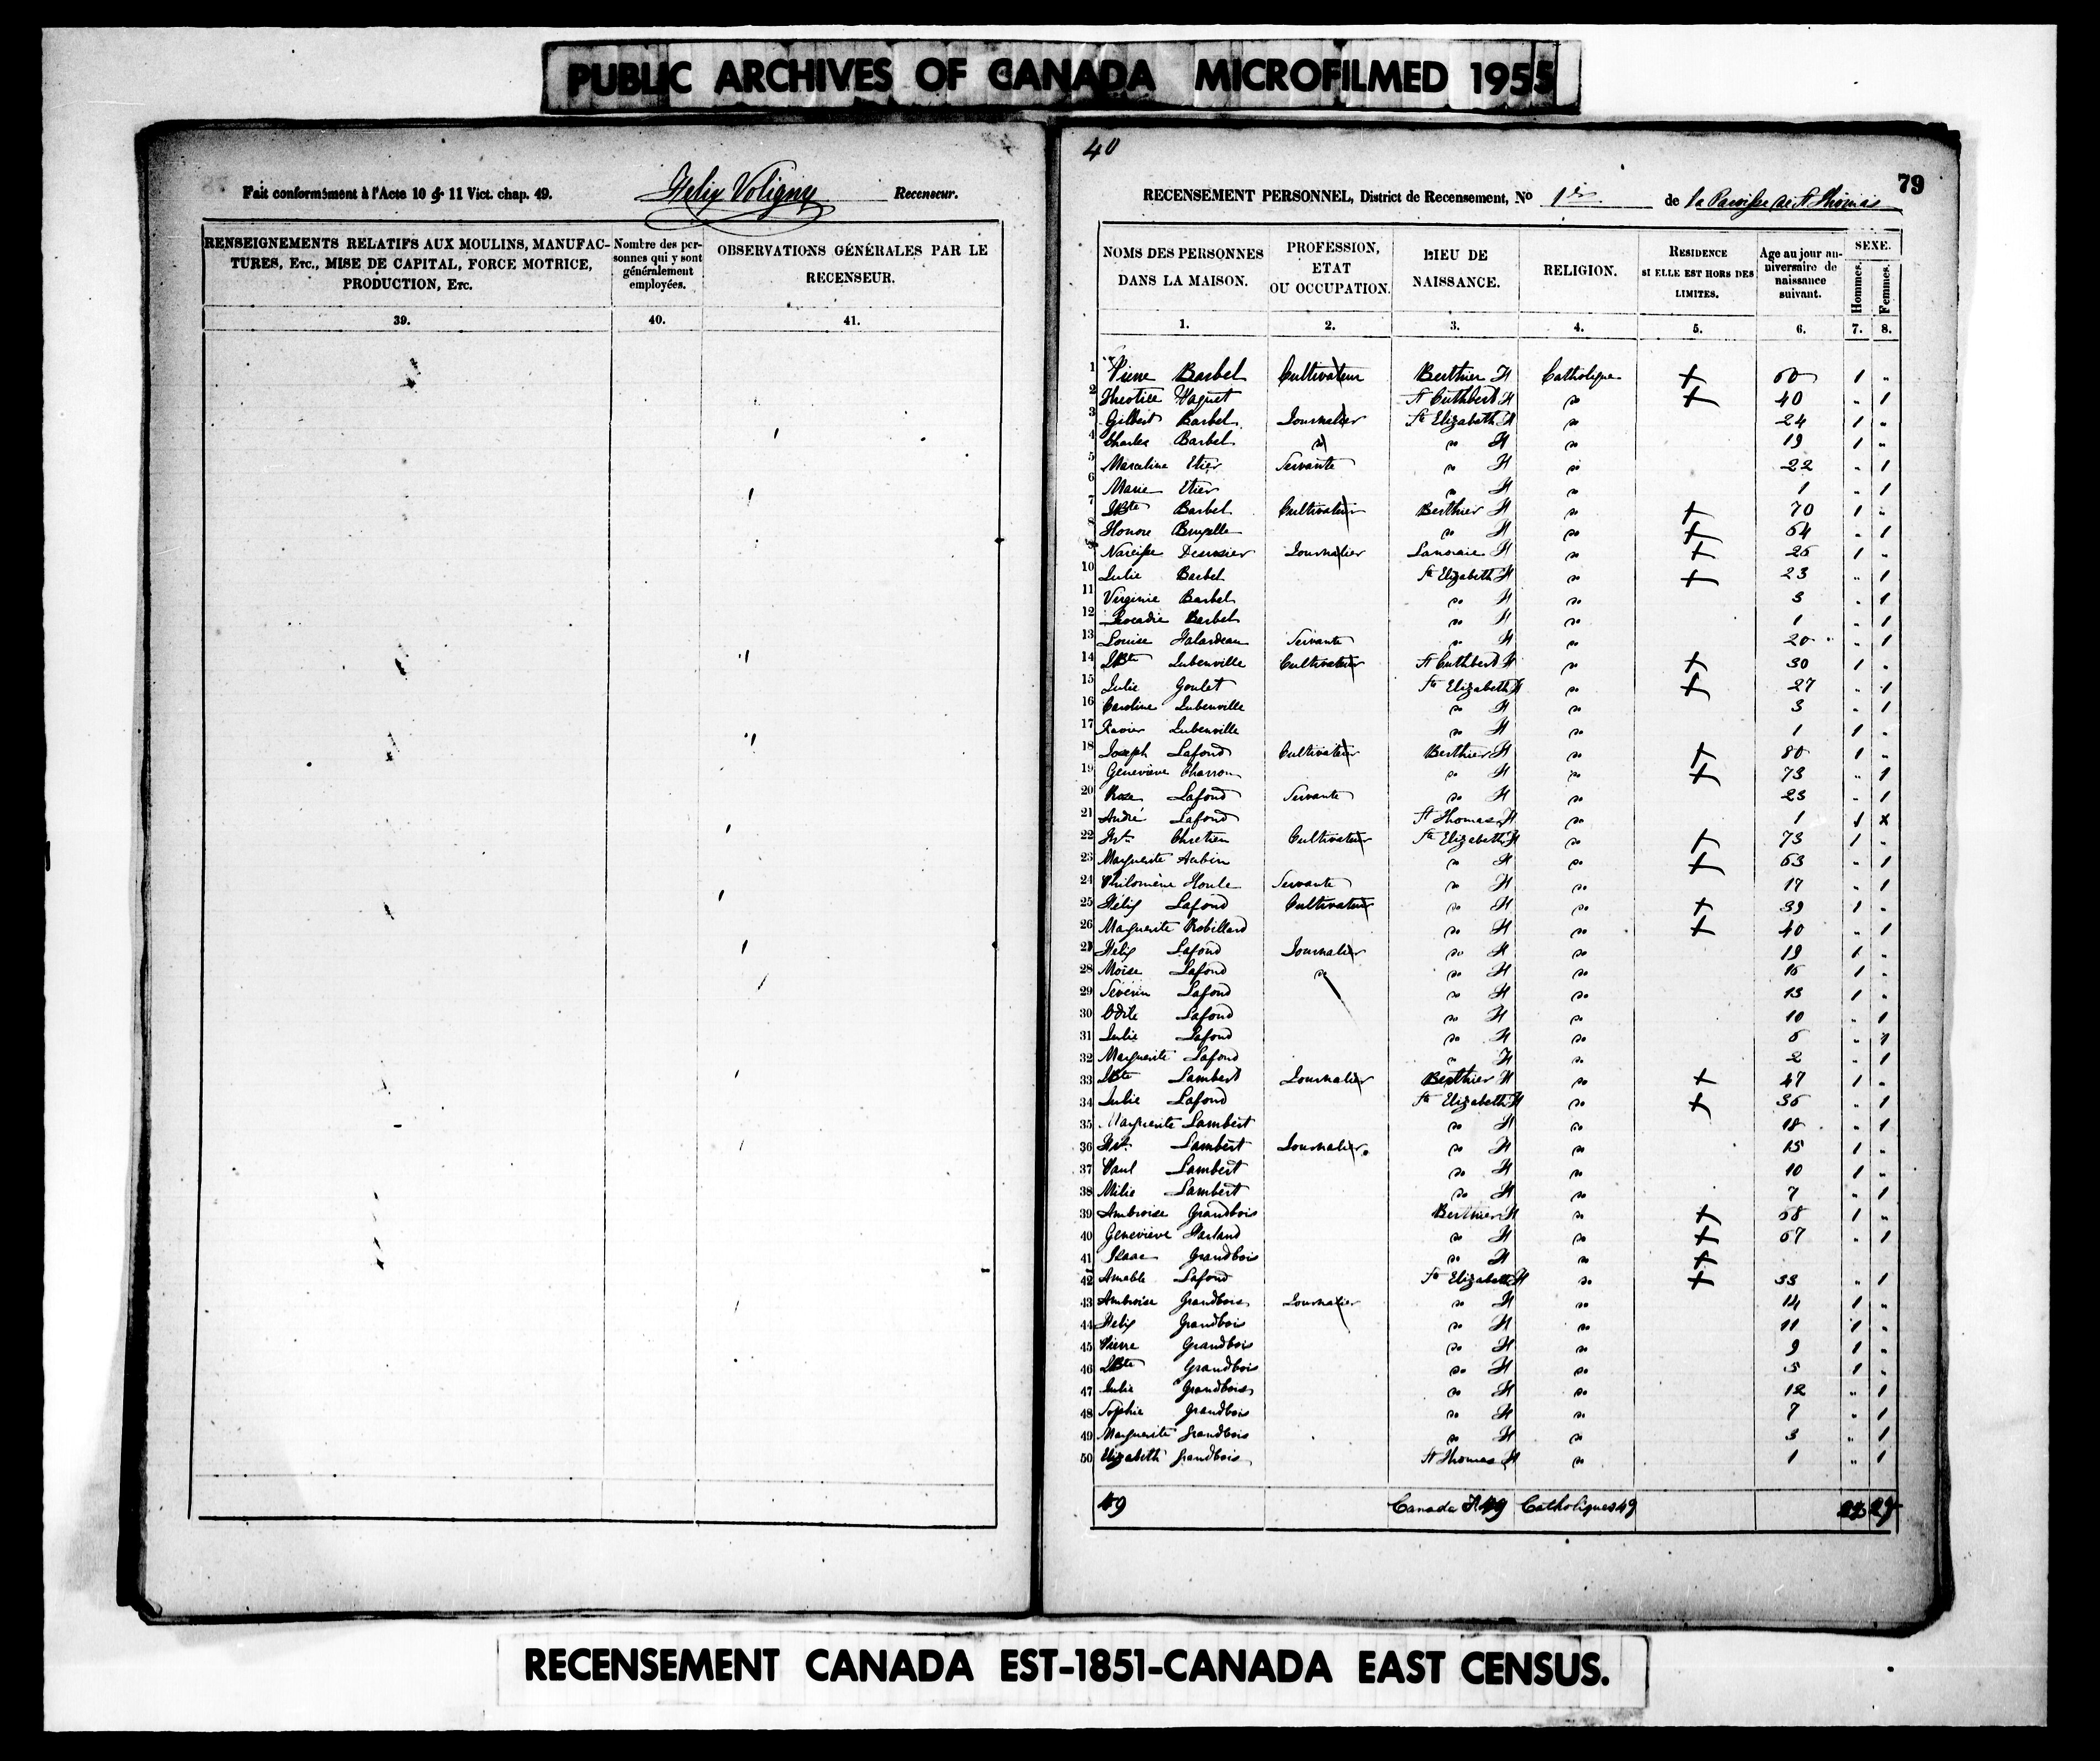 PUBLIC ARCHIVES OF CANADA MICROFILMED 1955
Fait conformément à l'Acte 10 & 11 Vict. chap. 49. Felix Voligny Recenseur.
RENSEIGNEMENTS RELATIFS AUX MOULINS, MANUFAC-
TURES, Etc., MISE DE CAPITAL, FORCE MOTRICE,
PRODUCTION, Etc.
Nombre des per-
sonnes qui y sont
généralement
employées.
OBSERVATIONS GÉNÉRALES PAR LE
RECENSEUR.
39. 40. 41.
40
79
RECENSEMENT PERSONNEL, District de Recensement, No 1er de la Paroisse de St Thomas
NOMS DES PERSONNES
DANS LA MAISON.
PROFESSION,
ETAT
OU OCCUPATION.
LIEU DE
NAISSANCE.
RELIGION.
RESIDENCE
SI ELLE EST HORS DES
LIMITES.
Age au jour an-
niversaire de
naissance
suivant.
SEXE.
Hommes. Femmes.
1. 2. 3. 4. 5. 6. 7. 8.
1 Pierre Barbel Cultivateur Berthier H Catholique + 60 1 "
2 Theotiste St Cuthbert H do + 40 " 1
3 Gilbert Barbel Journalier Ste Elizabeth H do 24 1 "
4 Charles Barbel do do H do 19 1 "
5 Marceline Etier Servante do H do 22 " 1
6 Marie Etier do H do 1 " 1
7 JBte Barbel Cultivateur Berthier H do + 70 1 "
8 Honore do H do + 64 " 1
9 Narcisse Desrosier Journalier Lanoraie H do + 26 1 "
10 Julie Barbel Ste Elizabeth H do + 23 " 1
11 Virginie Barbel do H do 3 " 1
12 Leocadie Barbel do H do 1 " 1
13 Louise Servante do H do 20 " 1
14 JBte Cultivateur St Cuthbert H do + 30 1 "
15 Julie Goulet Ste Elizabeth H do + 27 " 1
16 Caroline do H do 3 " 1
17 Xavier do H do 1 1 "
18 Joseph Lafond Cultivateur Berthier H do + 80 1 "
19 Geneviève Charron do H do + 73 " 1
20 Rose Lafond Servante do H do 23 " 1
21 André Lafond St Thomas H do 1 1 x
22 Chretien Cultivateur Ste Elizabeth H do + 73 1 "
23 Marguerite Aubin do H do + 63 " 1
24 Philomène Houle Servante do H do 17 " 1
25 Félix Lafond Cultivateur do H do + 39 1 "
26 Marguerite Robillard do H do + 40 " 1
27 Félix Lafond Journalier do H do 19 1 "
28 Moïse Lafond do do H do 16 1 "
29 Séverin Lafond do H do 13 1 "
30 Odile Lafond do H do 10 " 1
31 Julie Lafond do H do 6 " 1
32 Marguerite Lafond " H do 2 " 1
33 JBte Lambert Journalier Berthier H do + 47 1 "
34 Julie Lafond Ste Elizabeth H do + 36 " 1
35 Marguerite Lambert do H do 18 " 1
36 Lambert Journalier do H do 15 1 "
37 Paul Lambert do H do 10 1 "
38 Milie Lambert do H do 7 " 1
39 Ambroise Grandbois Berthier H do + 68 1 "
40 Geneviève Harland do H do + 67 " 1
41 Isaac Grandbois do H do +
42 Amable Lafond Ste Elizabeth H do + 33 " 1
43 Ambroise Grandbois Journalier do H do 14 1 "
44 Félix Grandbois do H do 11 1 "
45 Pierre Grandbois do H do 9 1 "
46 JBte Grandbois do H do 5 1 "
47 Julie Grandbois do H do 12 " 1
48 Sophie Grandbois do H do 7 " 1
49 Marguerite Grandbois do H do 3 " 1
50 Elizabeth Grandbois St Thomas H do 1 " 1
49 Canada H 49 Catholiques 49
RECENSEMENT CANADA EST-1851-CANADA EAST CENSUS.